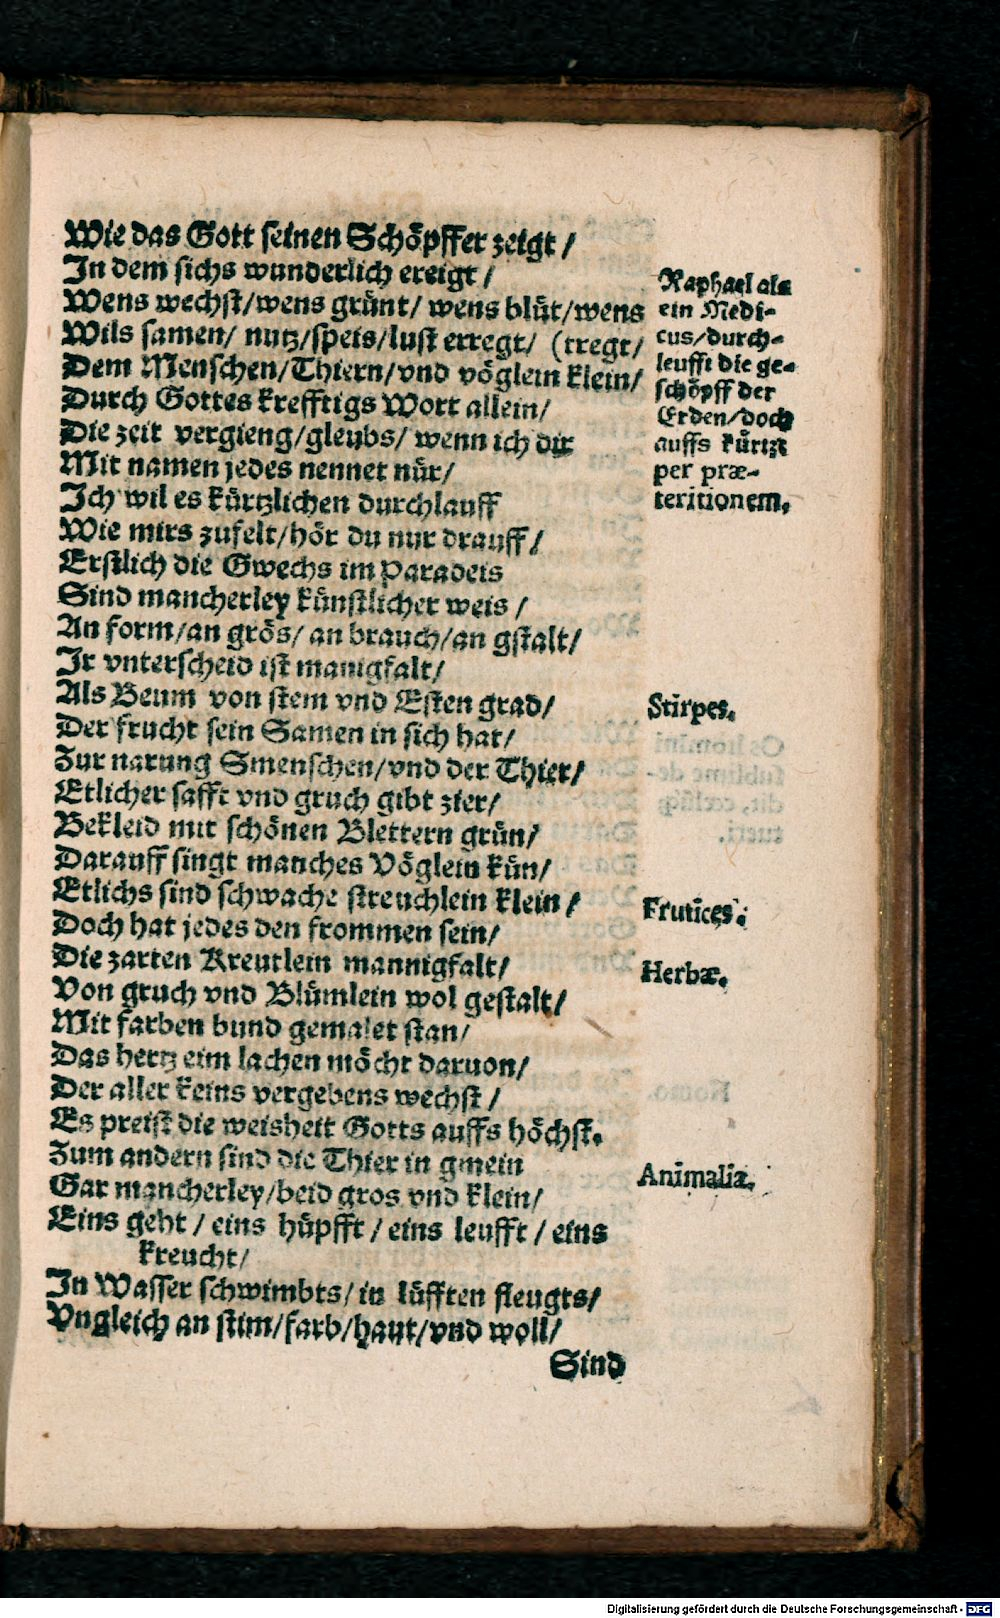 Wie das Gott seinen Schöpffer zeigt /
In dem sichs wunderlich ereigt /
Wens wechst/wens grünt/ wens blüt/wens
Wils samen/ nutz/speis/lust erregt/ (tregt/
Dem Menschen/Thiern/vnd vöglein klein/
Durch Gottes krefftigs Wort allein/
Die zeit vergieng/gleubs/ wenn ich dir
Mit namen jedes nennet nür/
Ich wil es kürtzlichen durchlauff
Wie mirs zufelt/hör du nur drauff/
Erstlich die Gwechs im Paradeis
Sind mancherley künstlicher weis /
An form/an grös/ an brauch/an gstalt/
Ir vnterscheid ist manigfalt/
Als Beum von stem vnd Esten grad/
Der frucht sein Samen in sich hat/
Zur narung Smenschen/vnd der Thier/
Etlicher safft vnd gruch gibt zier/
Bekleid mit schönen Blettern grün/
Darauff singt manches Vöglein kün/
Etlichs sind schwache streuchlein klein /
Doch hat jedes den frommen sein/
Die zarten Kreutlein mannigfalt/
Von gruch vnd Blümlein wol gestalt/
Mit farben bund gemalet stan/
Das hertz eim lachen möcht daruon/
Der aller keins vergebens wechst /
Es preist die weisheit Gotts auffs höchst.
Zum andern sind die Thier in gmein
Gar mancherley/beid gros vnd klein/
Eins geht / eins hüpfft / eins leufft / eins
kreucht/
In Wasser schwimbts/ in lüfften fleugts/
Vngleich an stim/farb/haut/vnd woll/
Sind
Raphael als
ein Medi-
cus/durch-
leufft die ge-
schöpff der
Erden/doch
auffs kürtzt
per præ-
teritionem.
Stirpes.
Frutices.
Herbæ.
Animalia.
Digitalisierung gefördert durch die Deutsche Forschungsgemeinschaft - DFG